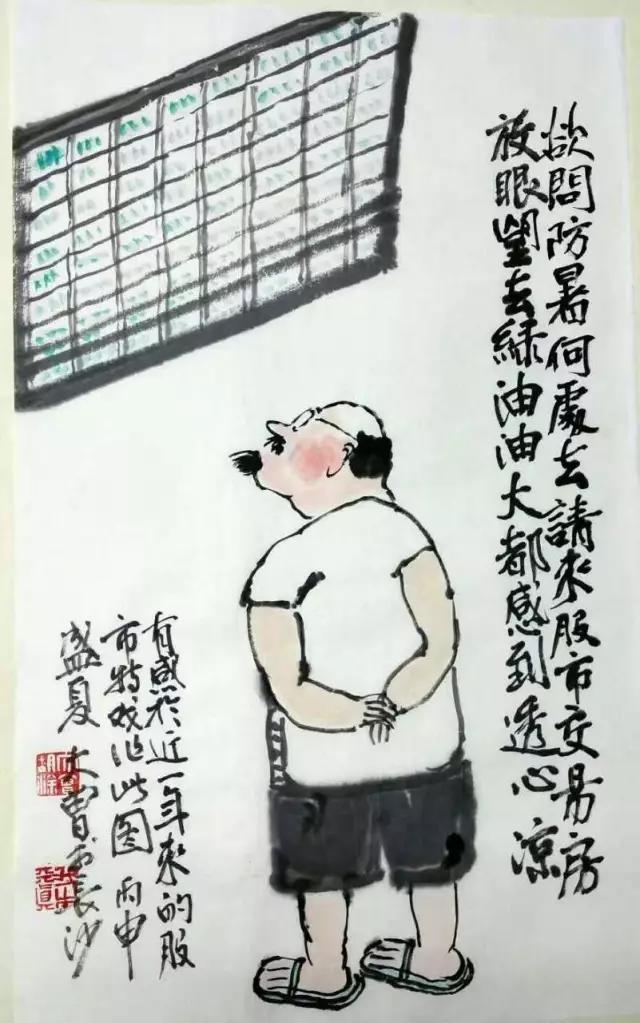 欲問防暑何處去請來股市交易房
放眼望去綠油油大都感到透心凉
有感於近一年來的股
市特戏作此图 丙申
盛夏 大曹於长沙